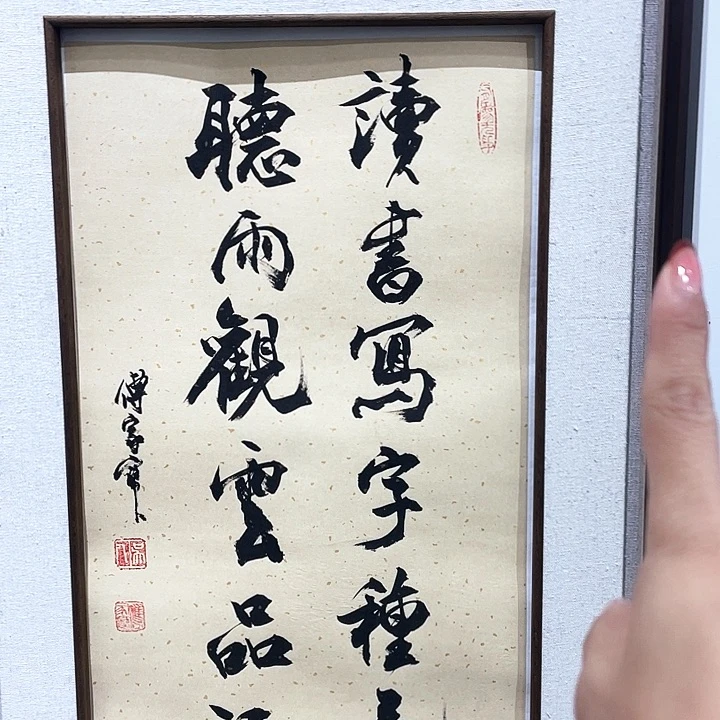 讀書寫字種
聽雨觀雲品
傅家寶